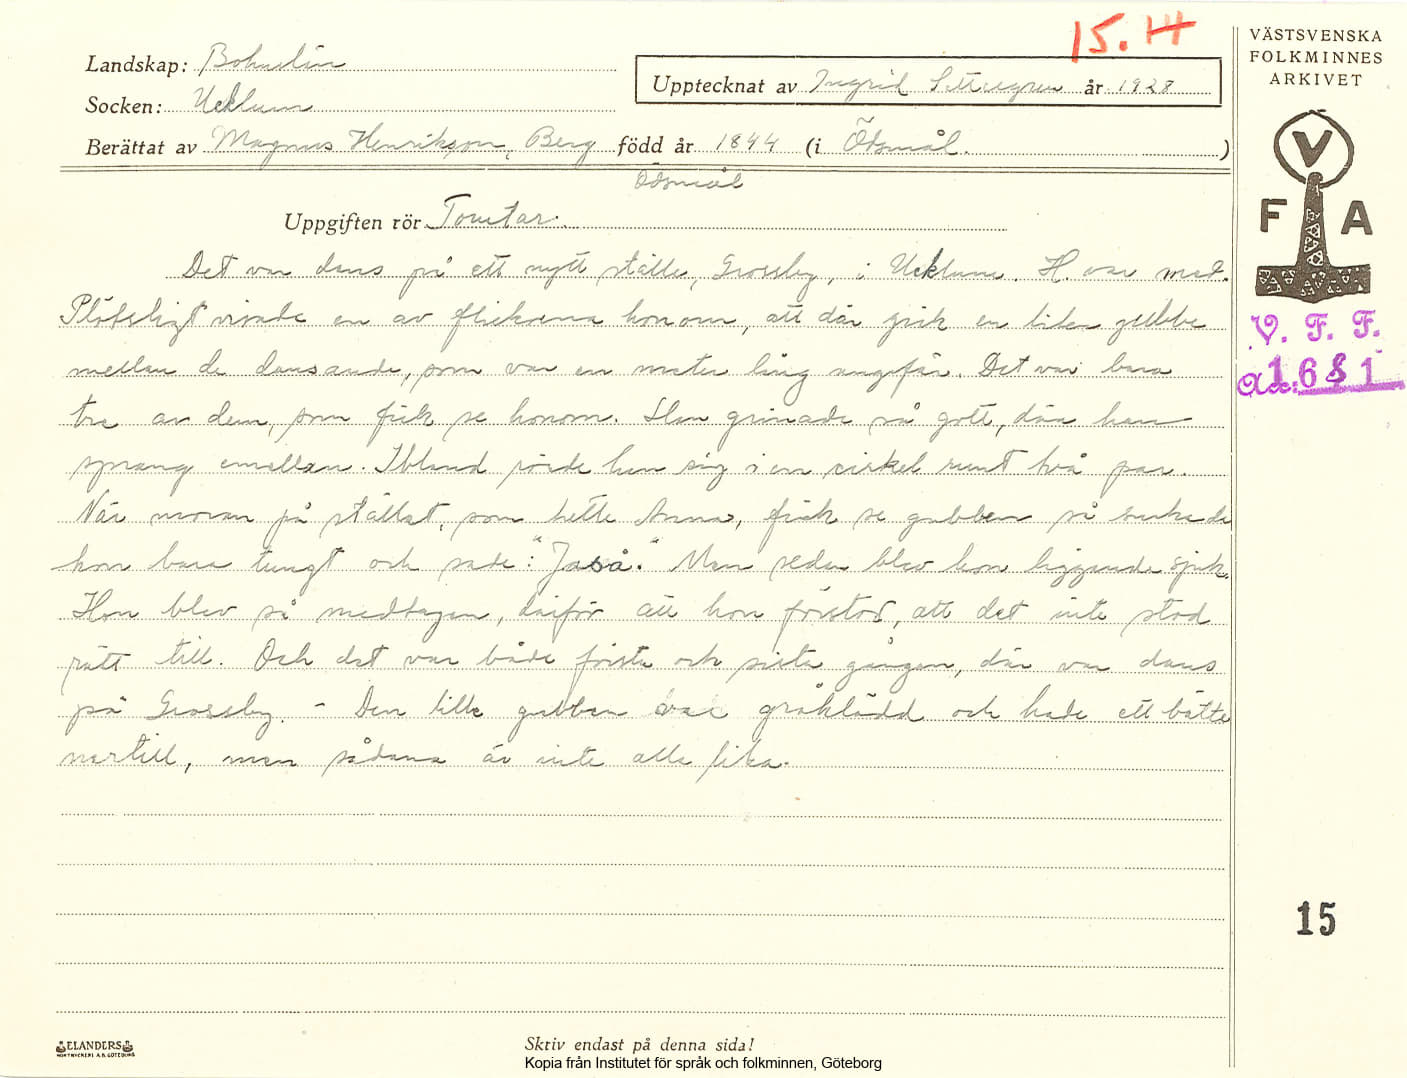 15. 14
VÄSTSVENSKA
FOLKMINNES
ARKIVET
Landskap: Bohuslän
Upptecknat av Ingrid år 1928
Socken: Ucklum
Berättat av Magnus Henrikson, Berg född år 1844 (i Ödsmål.)
Ödsmål
Uppgiften rör Tomtar.
V
F A
Det var dans på ett nytt ställe, Grossby, i Ucklum. H. var med.
Plötsligt visade en av flickorna honom, att där gick en liten gubbe
mellan de dansande, som var en meter lång ungefär. Det var bara
tre av dem, som fick se honom. Han grinade så gott, där han
sprang emellan. Ibland rörde han sig i en cirkel runt två par.
När moran på stället, som hette Anna, fick se gubben så suckade
hon bara tungt och sade: "Jaså." Men sedan blev hon liggande sjuk.
Hon blev så medtagen, därför att hon förstod, att det inte stod
rätt till. Och det var både första och sista gången, där var dans
på Grossby. - Den lille gubben var gråklädd och hade ett bälte
nertill, men sådana är inte alla lika.
V. F. F.
Acc: 1681
15
ELANDERS
BOKTRYCKERI A.B. GÖTEBORG
Skriv endast på denna sida!
Kopia från Institutet för språk och folkminnen, Göteborg